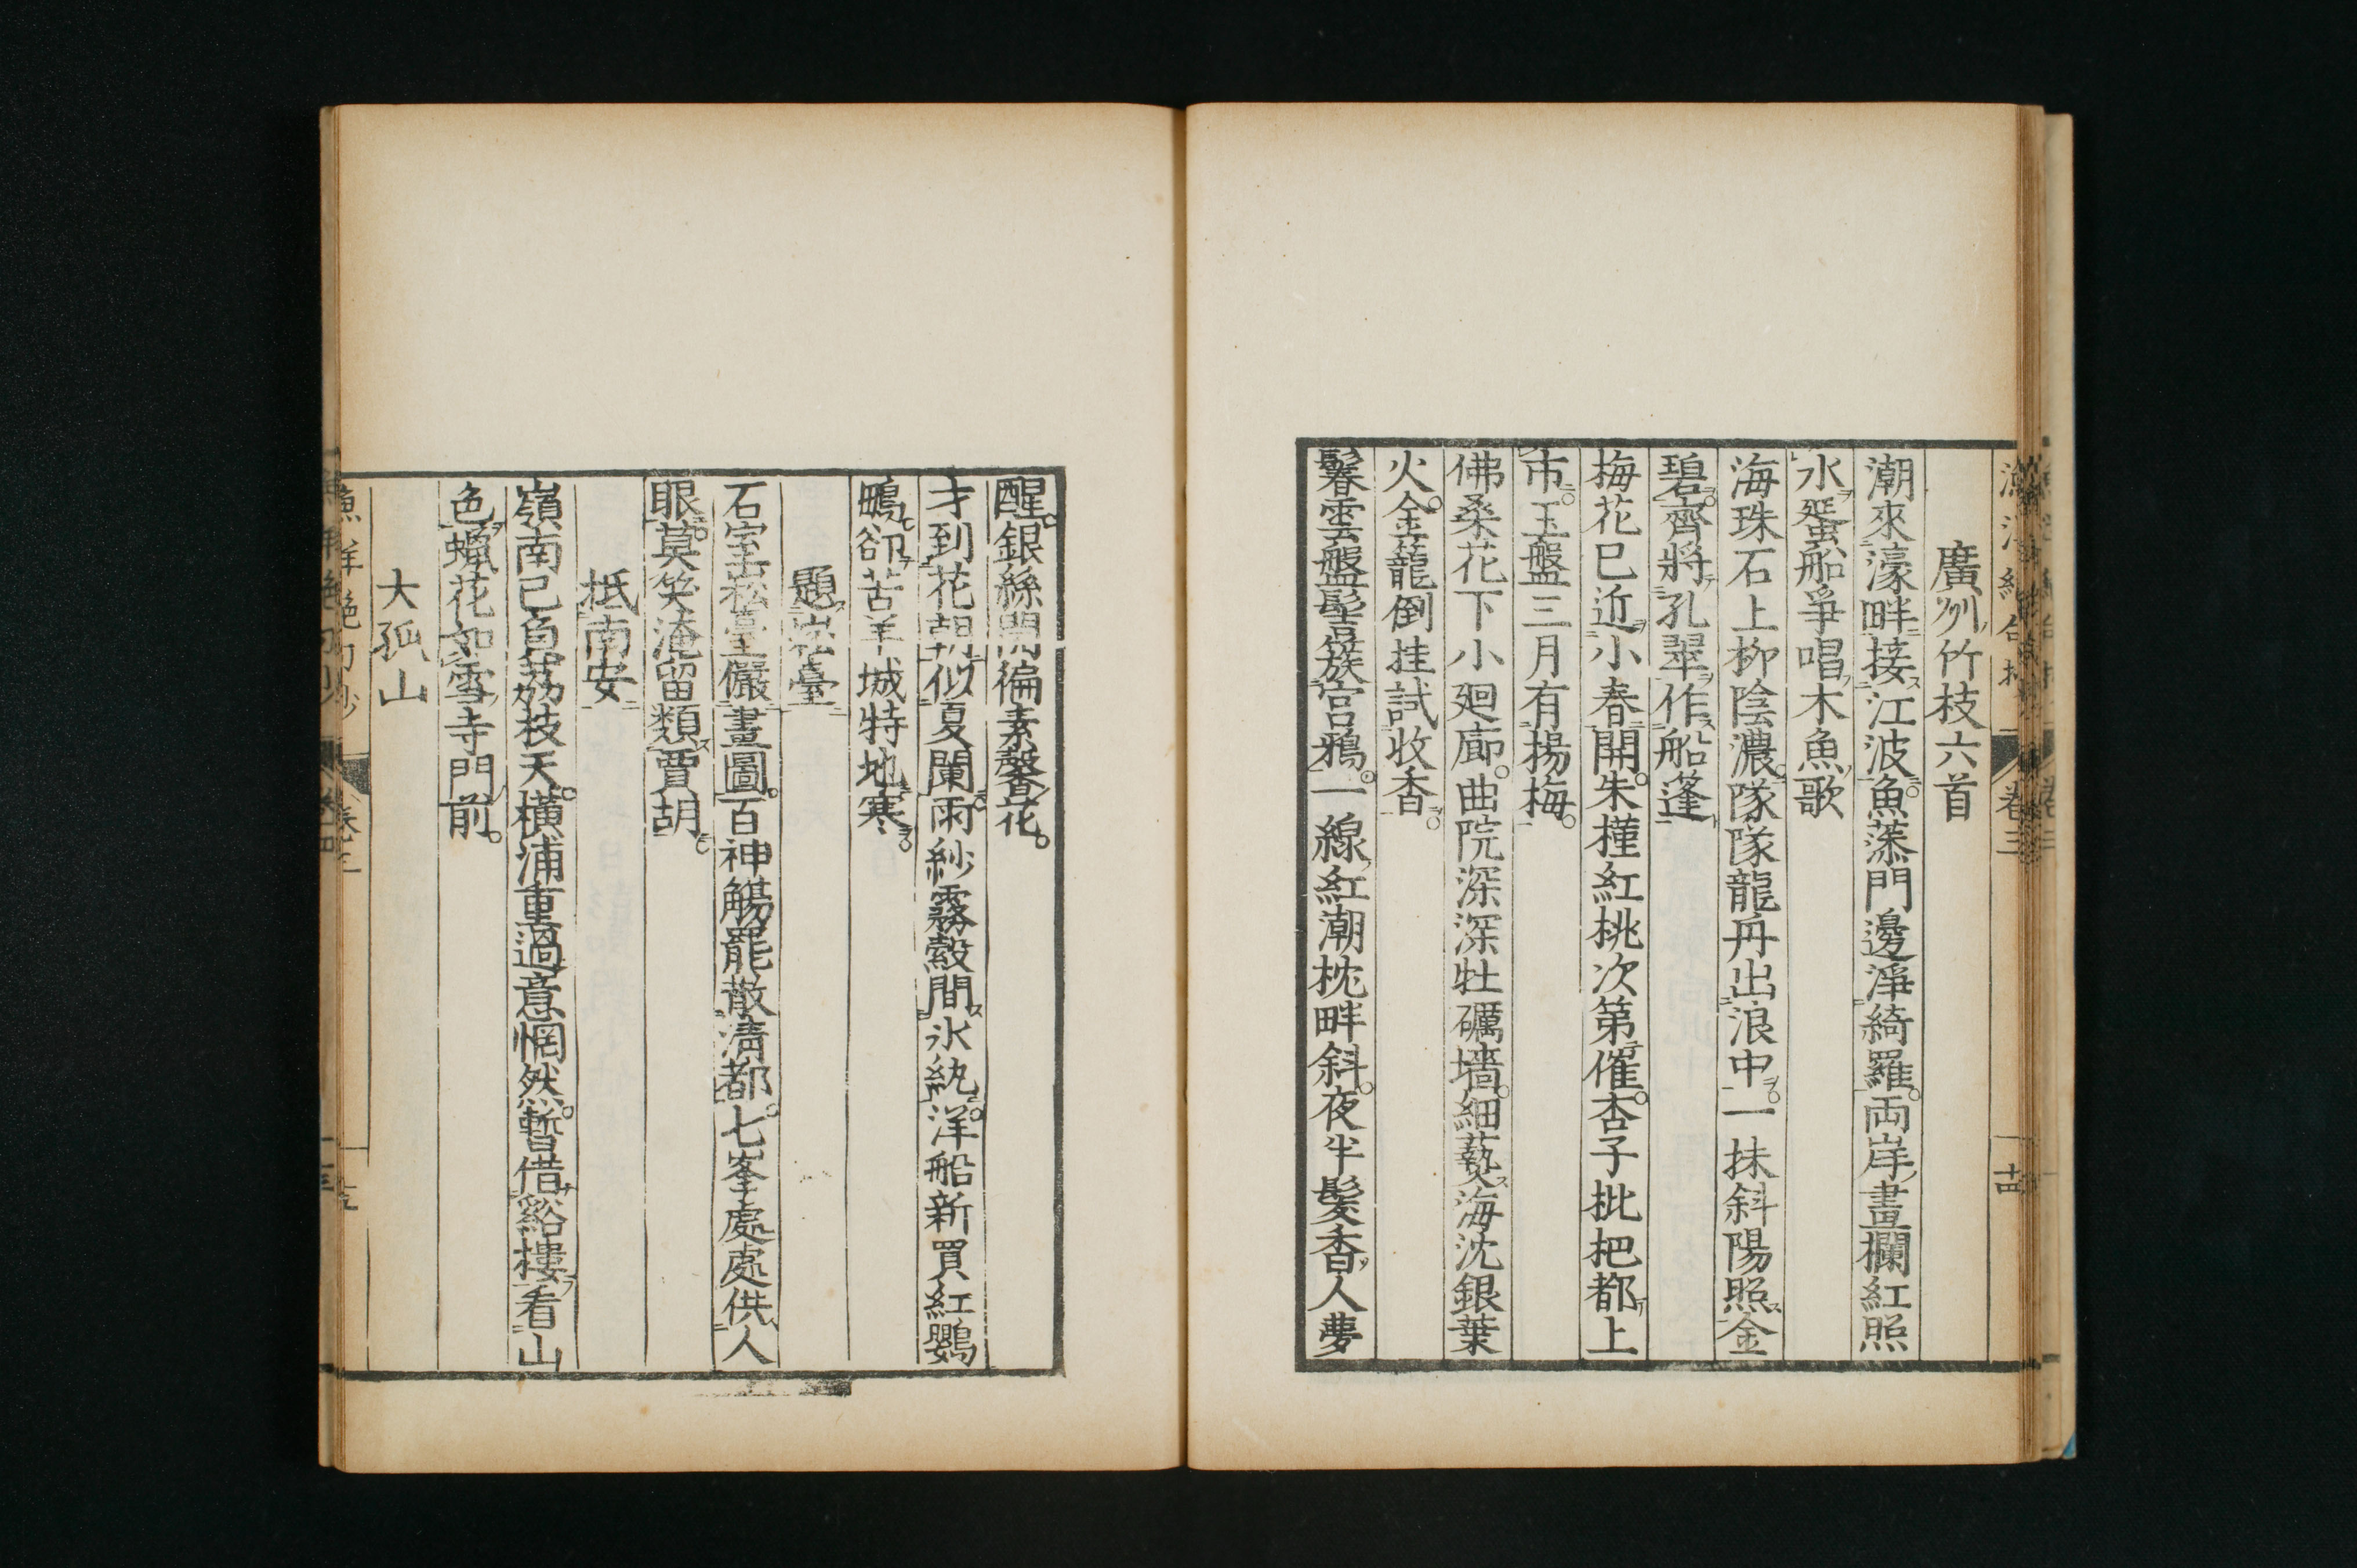 廣州竹枝六首
潮來濠畔接江波魚藻門邊淨綺羅兩岸畫欄紅照
水蜑船爭唱木魚歌
海珠石上柳陰濃隊隊龍舟出浪中一抹斜陽照金
碧齊將孔翠作船篷
梅花已近小春開朱槿紅桃次第催杏子枇杷都上
市玉盤三月有揚梅
佛桑花下小廻廊曲院深深牡礪墻細爇海沈銀葉
火金籠倒挂試收香
鬈雲盤髻簇宮鴉一線紅潮枕畔斜夜半髮香人夢
醒銀絲開徧素馨花
才到花朝似夏闌雨紗霧縠間氷紈洋船新買紅鸚
鵡卻苦羊城特地寒
題崧臺
石室崧臺儼畫圖百神觴罷散淸都七峯處處供人
眼莫笑淹留類賈胡
抵南安
嶺南已負荔枝天橫浦重過意惘然暫借谿樓看山
色蠟花如雪寺門前
大孤山